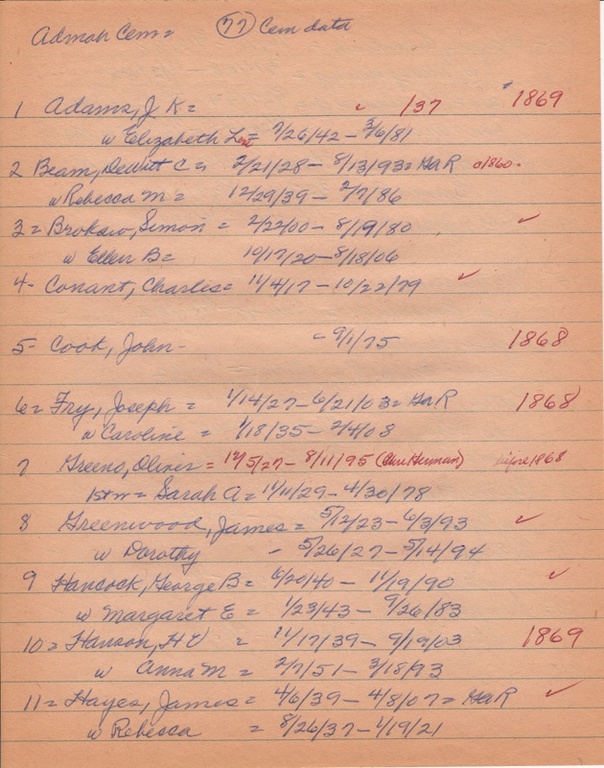 Admah Cem = (77) Cem data
1 Adams, J. K = ✓ 1/37 1869
w Elizabeth = 7/26/42 - 3/6/81
2 Beam, DeWitt C = 2/21/28 - 8/13/93 = GAR 1860
w Rebecca M = 12/29/39 - 2/7/86
3 = Brokaw, Simon = 2/22/00 - 8/19/80 ✓
w Ellen B = 10/17/20 - 8/18/06
4 - Conant, Charles = 11/4/17 - 10/22/79 ✓
5 - Cook, John - - 9/1/75 1868
6 = Fry, Joseph = 1/14/27 - 6/21/03 = GAR 1868
w Caroline = 1/18/35 - 2/4/08
7 Greeno, Oliver = 12/5/27 - 8/11/95 (Herman) before 1868
1st w = Sarah A = 11/11/29 - 4/30/78
8 Greenwood, James = 5/12/23 - 6/3/93 ✓
w Dorothy - 5/26/27 - 5/14/94
9 Hancock, George B = 6/20/40 - 11/19/90 ✓
w Margaret E = 1/23/43 - 9/26/83
10 = Hanson, H V = 11/17/39 - 9/19/03 1869
w Anna M = 2/7/51 - 3/18/93
11 = Hayes, James = 4/6/39 - 4/8/07 = GAR ✓
w Rebecca = 8/26/37 - 1/19/21